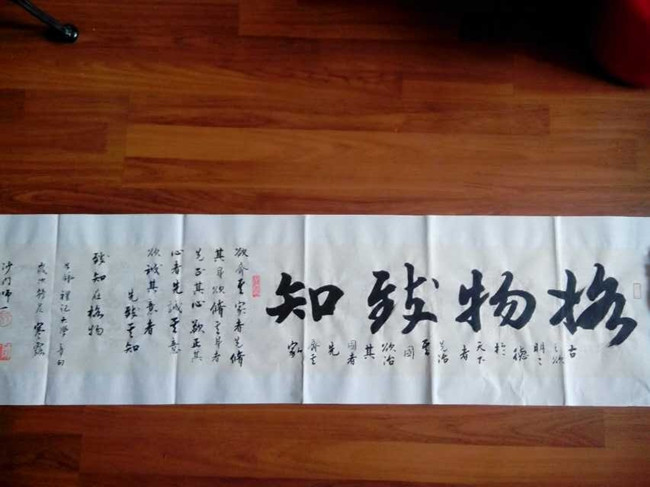 格物致知
古
之欲
明〻
德
於
天下
者
先治
其
國
欲治
其
國者
先
齊其
家
欲齊其家者先修
其身欲修其身者
先正其心欲正其
心者先誠其意
欲誠其意者
先致其知
致知在格物
禮記大學章句
寒露
沙門